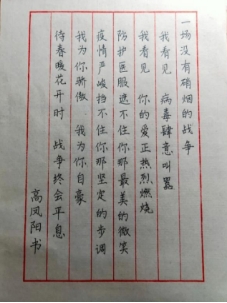 一场没有硝烟的战争
我看见 病毒肆意叫嚣
我看见 你的爱正热烈燃烧
防护医服遮不住你那最美的微笑
疫情严峻挡不住你那坚定的步调
我为你骄傲 我为你自豪
待春暖花开时 战争终会平息
高凤阳书